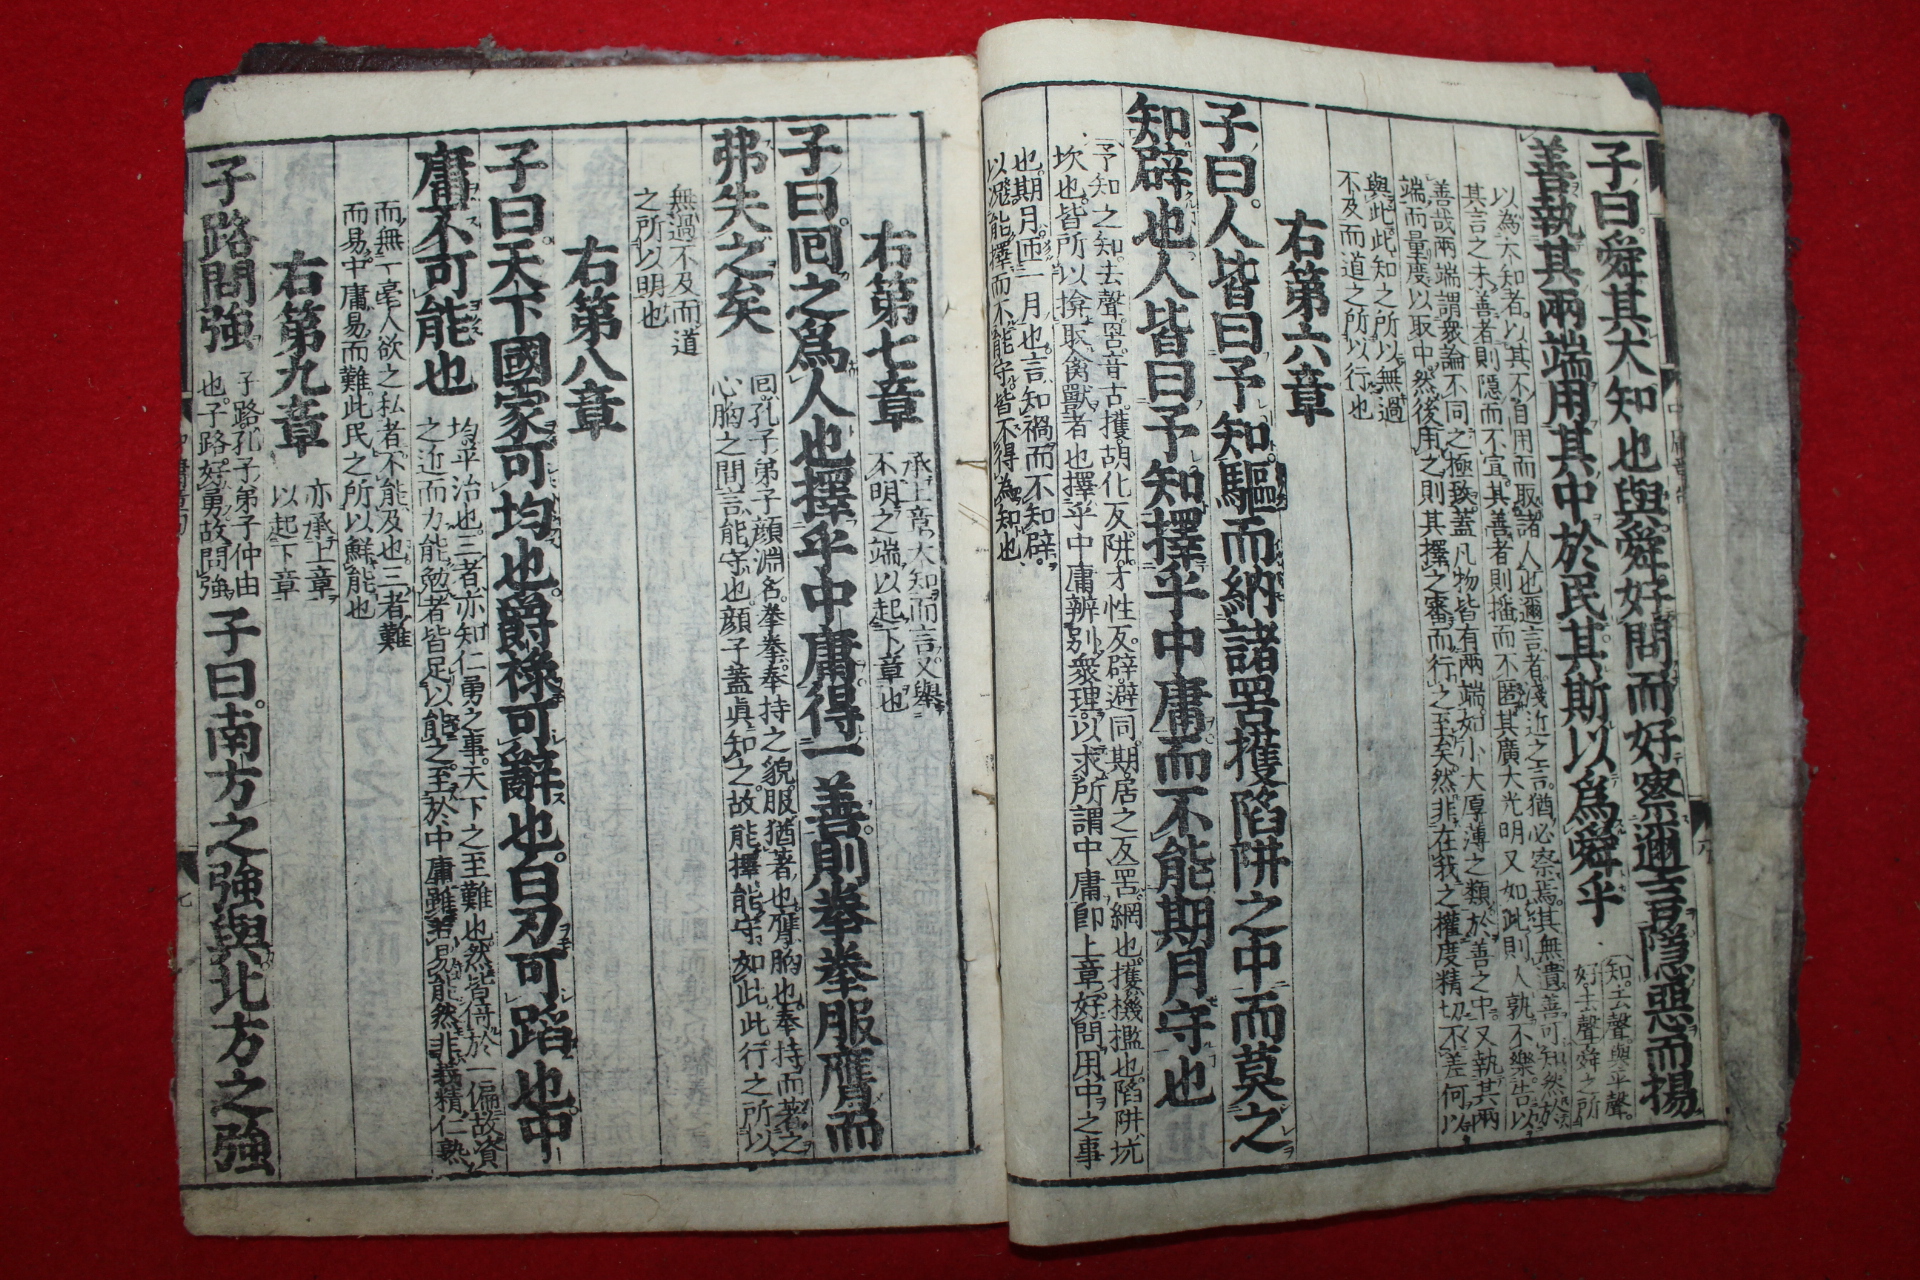 子曰舜其大知也與舜好問而好察邇言隱惡而揚
善執其兩端用其中於民其斯以爲舜乎
知去聲與平聲
好去聲舜之所
以為大知者以其不自用而取諸人也邇言者淺近之言猶必察焉其無遺善可知然於
其言之未善者則隱而不宣其善者則播而不匿其廣大光明又如此則人孰不樂告以
善哉兩端謂衆論不同之極致蓋凡物皆有兩端如小大厚薄之類於善之中又執其兩
端而量度以取中然後用之則其擇之審而行之至矣然非在我之權度精切不差何以
與此此知之所以無過
不及而道之所以行也
右第六章
子曰人皆曰予知驅而納諸罟擭陷阱之中而莫之
知辟也人皆曰予知擇乎中庸而不能期月守也
予知之知去聲罟音古擭胡化反阱才性反辟避同期居之反罟網也擭機檻也陷阱坑
坎也皆所以揜取禽獸者也擇乎中庸辨别衆理以求所謂中庸卽上章好問用中之事
也期月匝一月也言知禍而不知辟
以況能擇而不能守皆不得為知也
右第七章
承上章大知而言又舉
不明之端以起下章也
子曰回之爲人也擇乎中庸得一善則拳拳服膺而
弗失之矣
回孔子弟子顔淵名拳拳奉持之貌服猶著也膺胸也奉持而著之
心胸之間言能守也顔子蓋眞知之故能擇能守如此此行之所以
無過不及而道
之所以明也
右第八章
子曰天下國家可均也爵祿可辭也白刃可蹈也中
庸不可能也
均平治也三者亦知仁勇之事天下之至難也然皆倚於一偏故資
之近而力能勉者皆足以能之至於中庸雖若易能然非義精仁熟
而無一毫人欲之私者不能及也三者難
而易中庸易而難此民之所以鮮能也
右第九章
亦承上章
以起下章
子路問強
子路孔子弟子仲由
也子路好勇故問強
子曰南方之強與北方之強
中庸章句
七